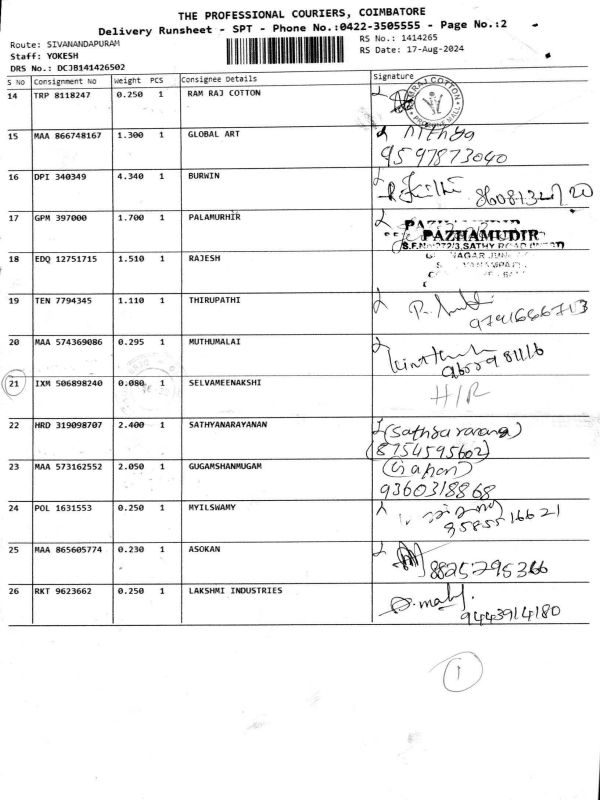 THE PROFESSIONAL COURIERS, COIMBATORE
Delivery Runsheet - SPT - Phone No.:0422-3505555 - Page No.:2
Route: SIVANANDAPURAM
RS No.: 1414265
Staff: YOKESH
RS Date: 17-Aug-2024
DRS No.: DCJB141426502
S No Consignment No Weight PCS Consignee Details Signature
14 TRP 8118247 0.250 1 RAM RAJ COTTON
RAMRAJ COTTON
15 MAA 866748167 1.300 1 GLOBAL ART Nithya
9597873040
16 DPI 340349 4.340 1 BURWIN
17 GPM 397000 1.700 1 PALAMURHIR
PAZHAMUDIR
18 EDQ 12751715 1.510 1 RAJESH
19 TEN 7794345 1.110 1 THIRUPATHI
20 MAA 574369086 0.295 1 MUTHUMALAI
21 IXM 506898240 0.080 1 SELVAMEENAKSHI
22 HRD 319098707 2.400 1 SATHYANARAYANAN
(8754595602)
23 MAA 573162552 2.050 1 GUGAMSHANMUGAM
9360318868
24 POL 1631553 0.250 1 MYILSWAMY
25 MAA 865605774 0.230 1 ASOKAN
8825295366
26 RKT 9623662 0.250 1 LAKSHMI INDUSTRIES
9443914180
1